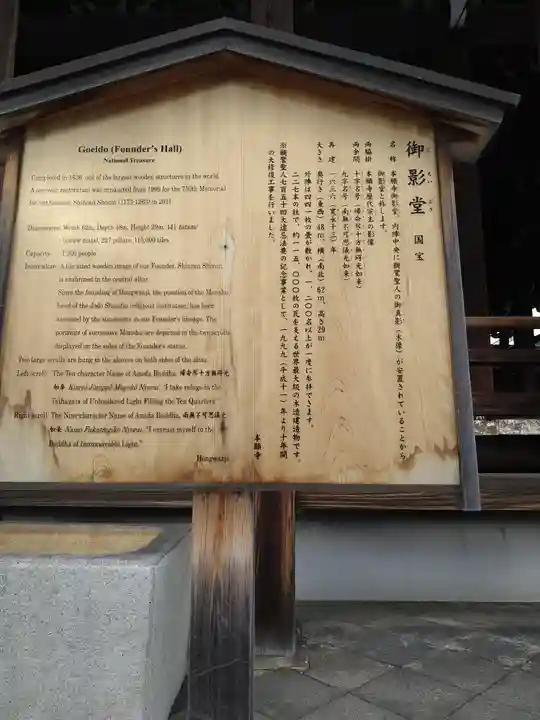 Goeido (Founder's Hall)
National Treasure
Completed in 1636, one of the largest wooden structures in the world.
A ten-year restoration was conducted from 1999 for the 750th Memorial
for our founder, Shinran Shonin (1173-1263) in 2011
Dimensions: Width 62m, Depth 48m, Height 29m, 441 tatami/
(straw mats), 227 pillars, 115,000 tiles
Capacity: 1,200 people
Interior: A life sized wooden image of our Founder, Shinran Shonin,
is enshrined in the central altar.
Since the founding of Hongwanji, the position of the Monshu,
head of the Jodo Shinshu religious institution, has been
assumed by the successors in our Founder's lineage. The
portraits of successive Monshu are depicted in the two scrolls
displayed on the sides of the Founder's statue.
Two large scrolls are hung in the alcoves on both sides of the altar.
Left scroll: The Ten-character Name of Amida Buddha, 帰命尽十方無碍光
如来 Kimyo Jinjippo Mugeko Nyorai, "I take refuge in the
Tathagata of Unhindered Light Filling the Ten Quarters."
Right scroll: The Nine-character Name of Amida Buddha, 南無不可思議光
如来 Namo Fukashigiko Nyorai, "I entrust myself to the
Buddha of Immeasurable Light."
Hongwanji
御影堂 国宝
ごえいどう
名称 本願寺御影堂。内陣中央に親鸞聖人の御真影(木像)が安置されていることから
御影堂と称します。
両脇掛 本願寺歴代宗主の影像
両余間 十字名号(帰命尽十方無碍光如来)
九字名号(南無不可思議光如来)
再建 一六三六(寛永十三)年
大きさ 奥行き(東西)48m、横(南北)62m、高さ29m
外陣は四四一枚の畳が敷かれ、一二〇〇名以上が一度に参拝できます。
二二七本の柱で、約一一五、〇〇〇枚の瓦を支える世界最大級の木造建造物です。
※親鸞聖人七百五十回大遠忌法要の記念事業として、一九九九(平成十一)年より十年間
の大修復工事を行いました。
本願寺